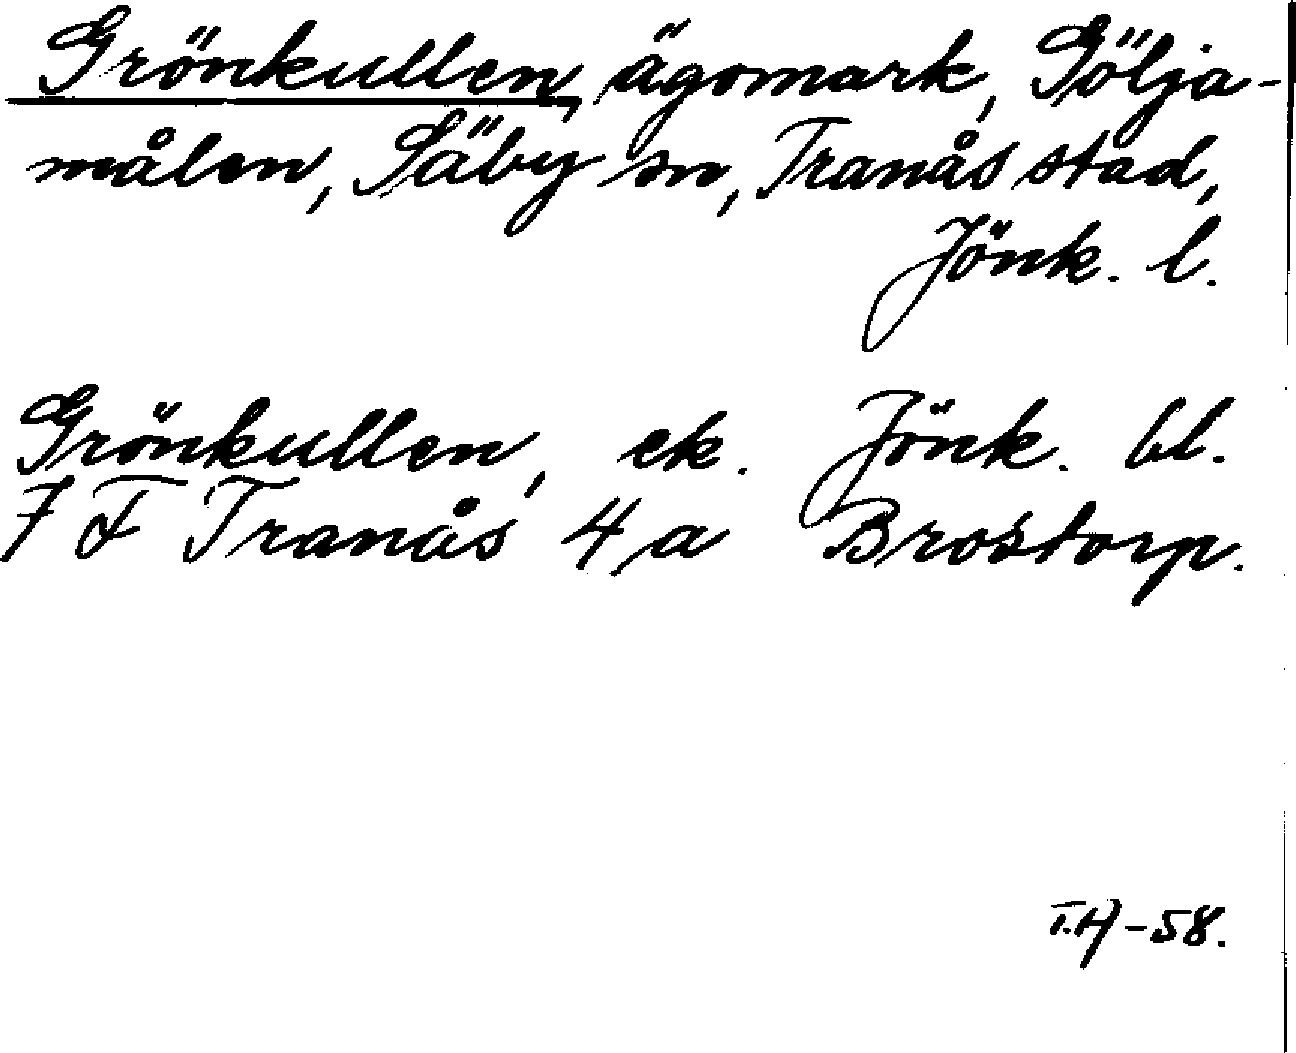 Grönkullen, ägomark, Sölja-
målen, Säby sn, Tranås stad,
Jönk. l.
Grönkullen, ek. Jönk. bl.
7 F Tranås 4 a Brostorp.
T.H-58.